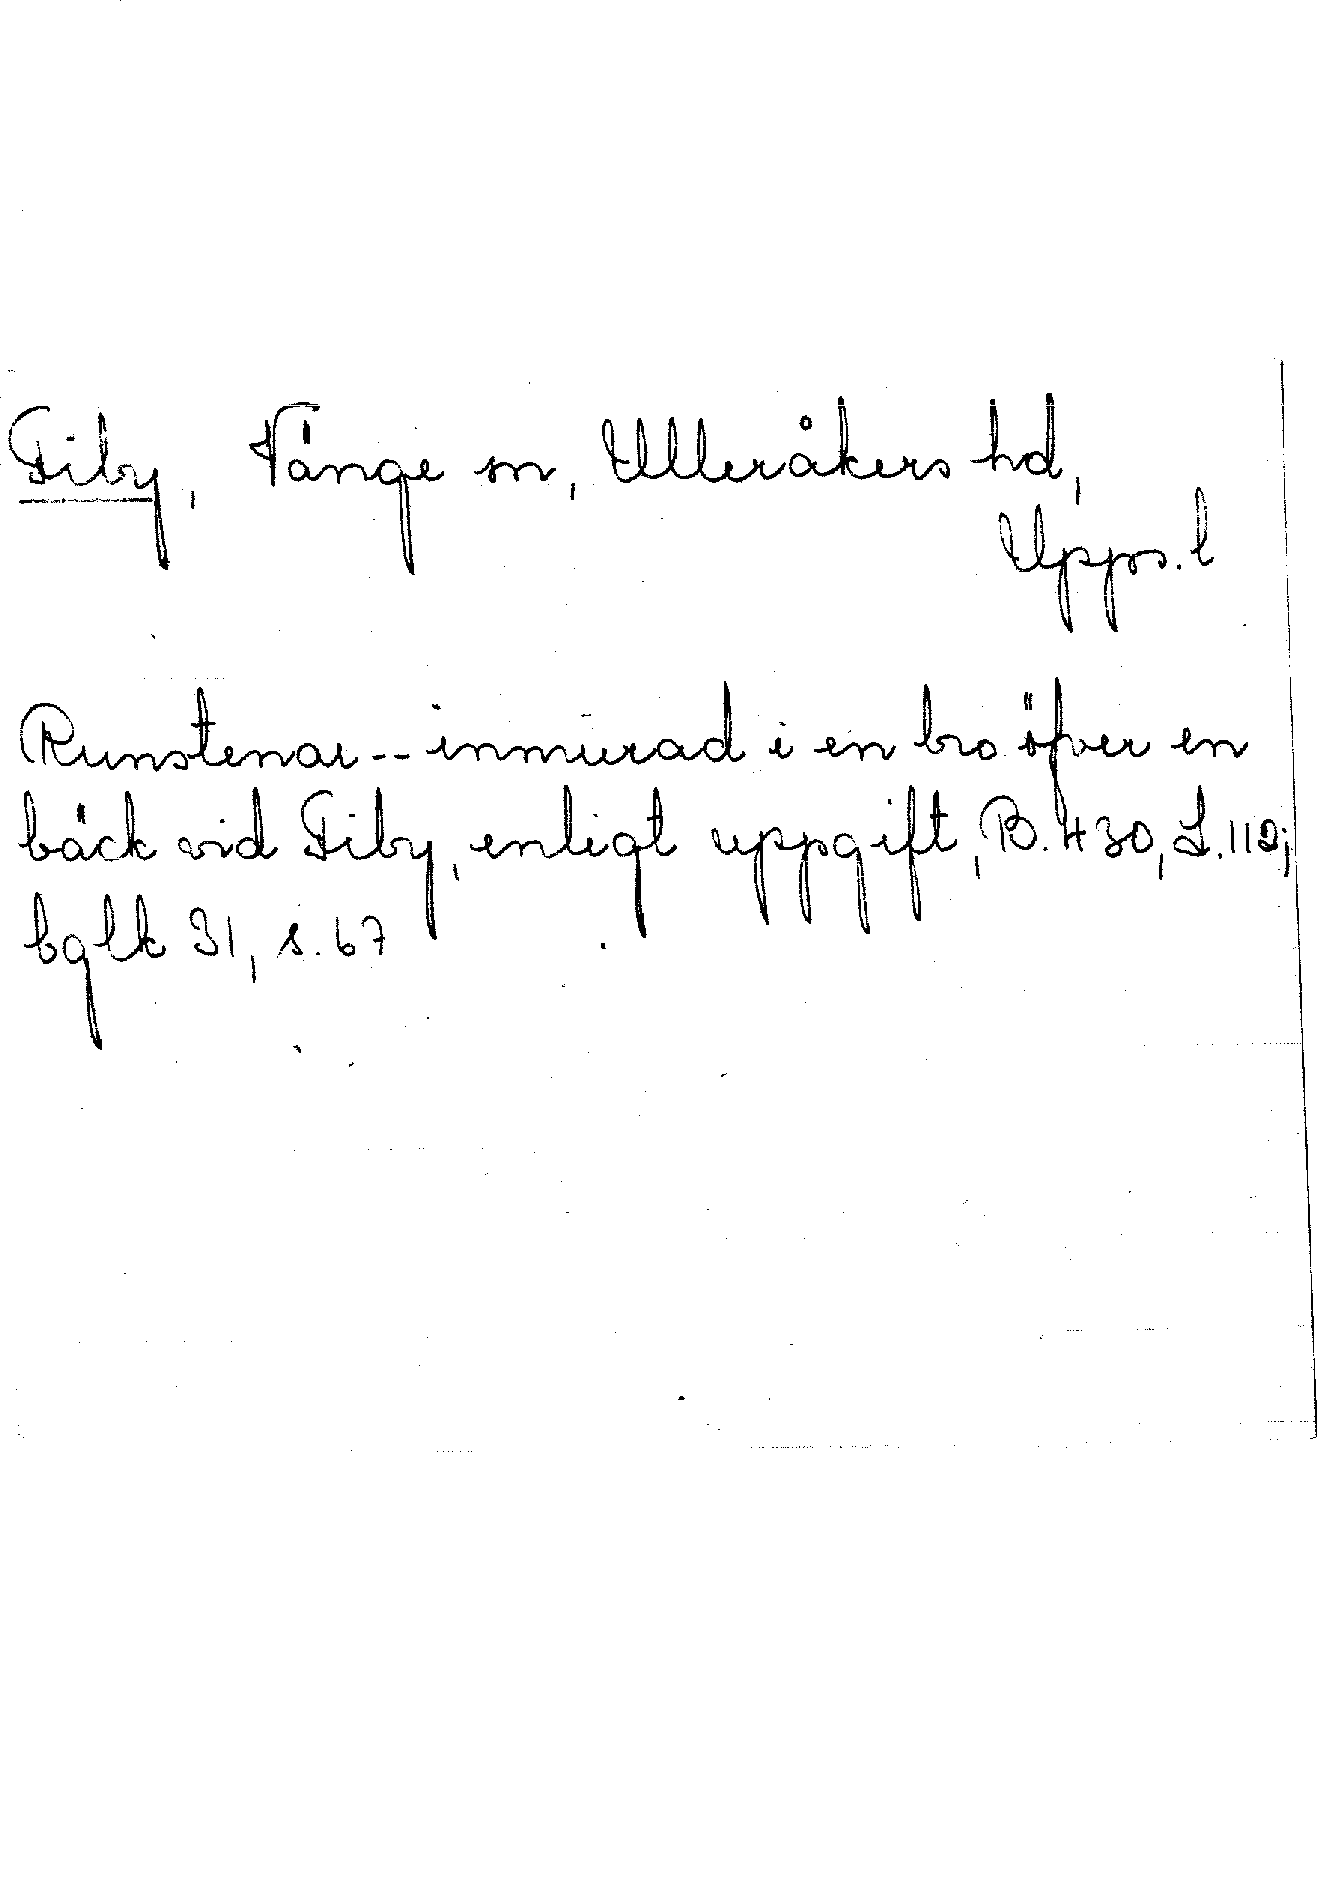 Fiby, Vänge sn, Ulleråkers hd,
Upps. l
Runstenar -- inmurad i en bro öfver en
bäck vid Fiby, enligt uppgift, B. 430, L. 112;
bglk 31, s. 67